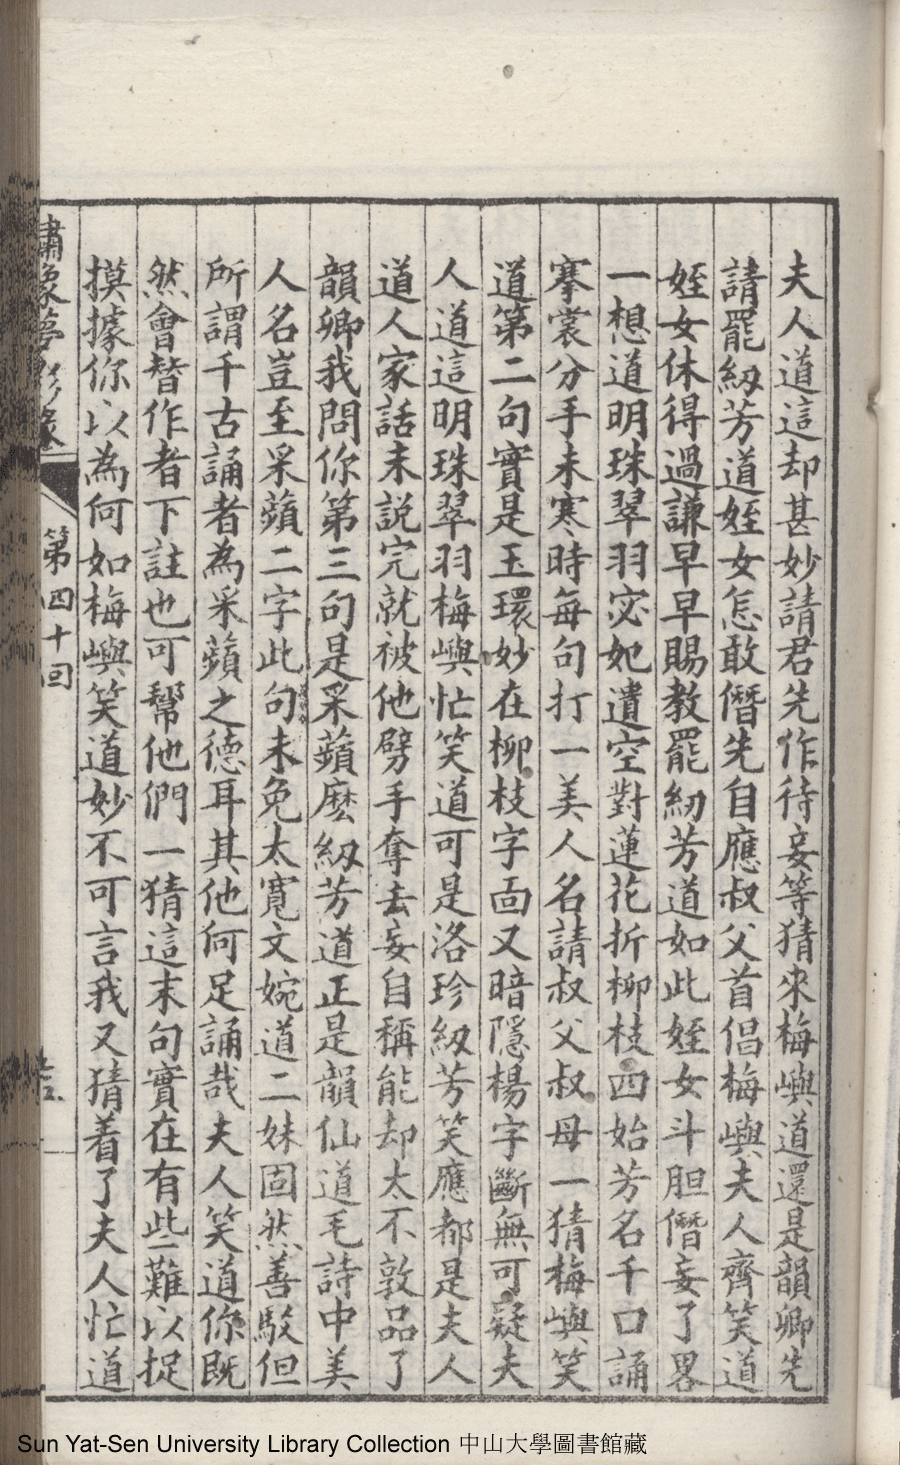 夫人道這却甚妙請君先作待妾等猜來梅嶼道還是韻卿先
請罷紉芳道姪女怎敢僭先自應叔父首倡梅嶼夫人齊笑道
姪女休得過謙早早賜教罷紉芳道如此姪女斗胆僭妄了畧
一想道明珠翠羽宓妃遺空對蓮花折柳枝四始芳名千口誦
搴裳分手未寒時每句打一美人名請叔父叔母一猜梅嶼笑
道第二句實是玉環妙在柳枝字面又暗隱楊字斷無可疑夫
人道這明珠翠羽梅嶼忙笑道可是洛珍紉芳笑應都是夫人
道人家話未說完就被他劈手奪去妾自稱能却太不敦品了
韻卿我問你第三句是采蘋麽紉芳道正是韻仙道毛詩中美
人名豈至采蘋二字此句未免太寛文婉道二妹固然善駁但
所謂千古誦者為采蘋之德耳其他何足誦哉夫人笑道你既
然會替作者下註也可幫他們一猜這末句實在有些難以捉
摸據你以為何如梅嶼笑道妙不可言我又猜着了夫人忙道
繡像夢影緣
第四十回
Sun Yat-Sen University Library Collection 中山大學圖書館藏